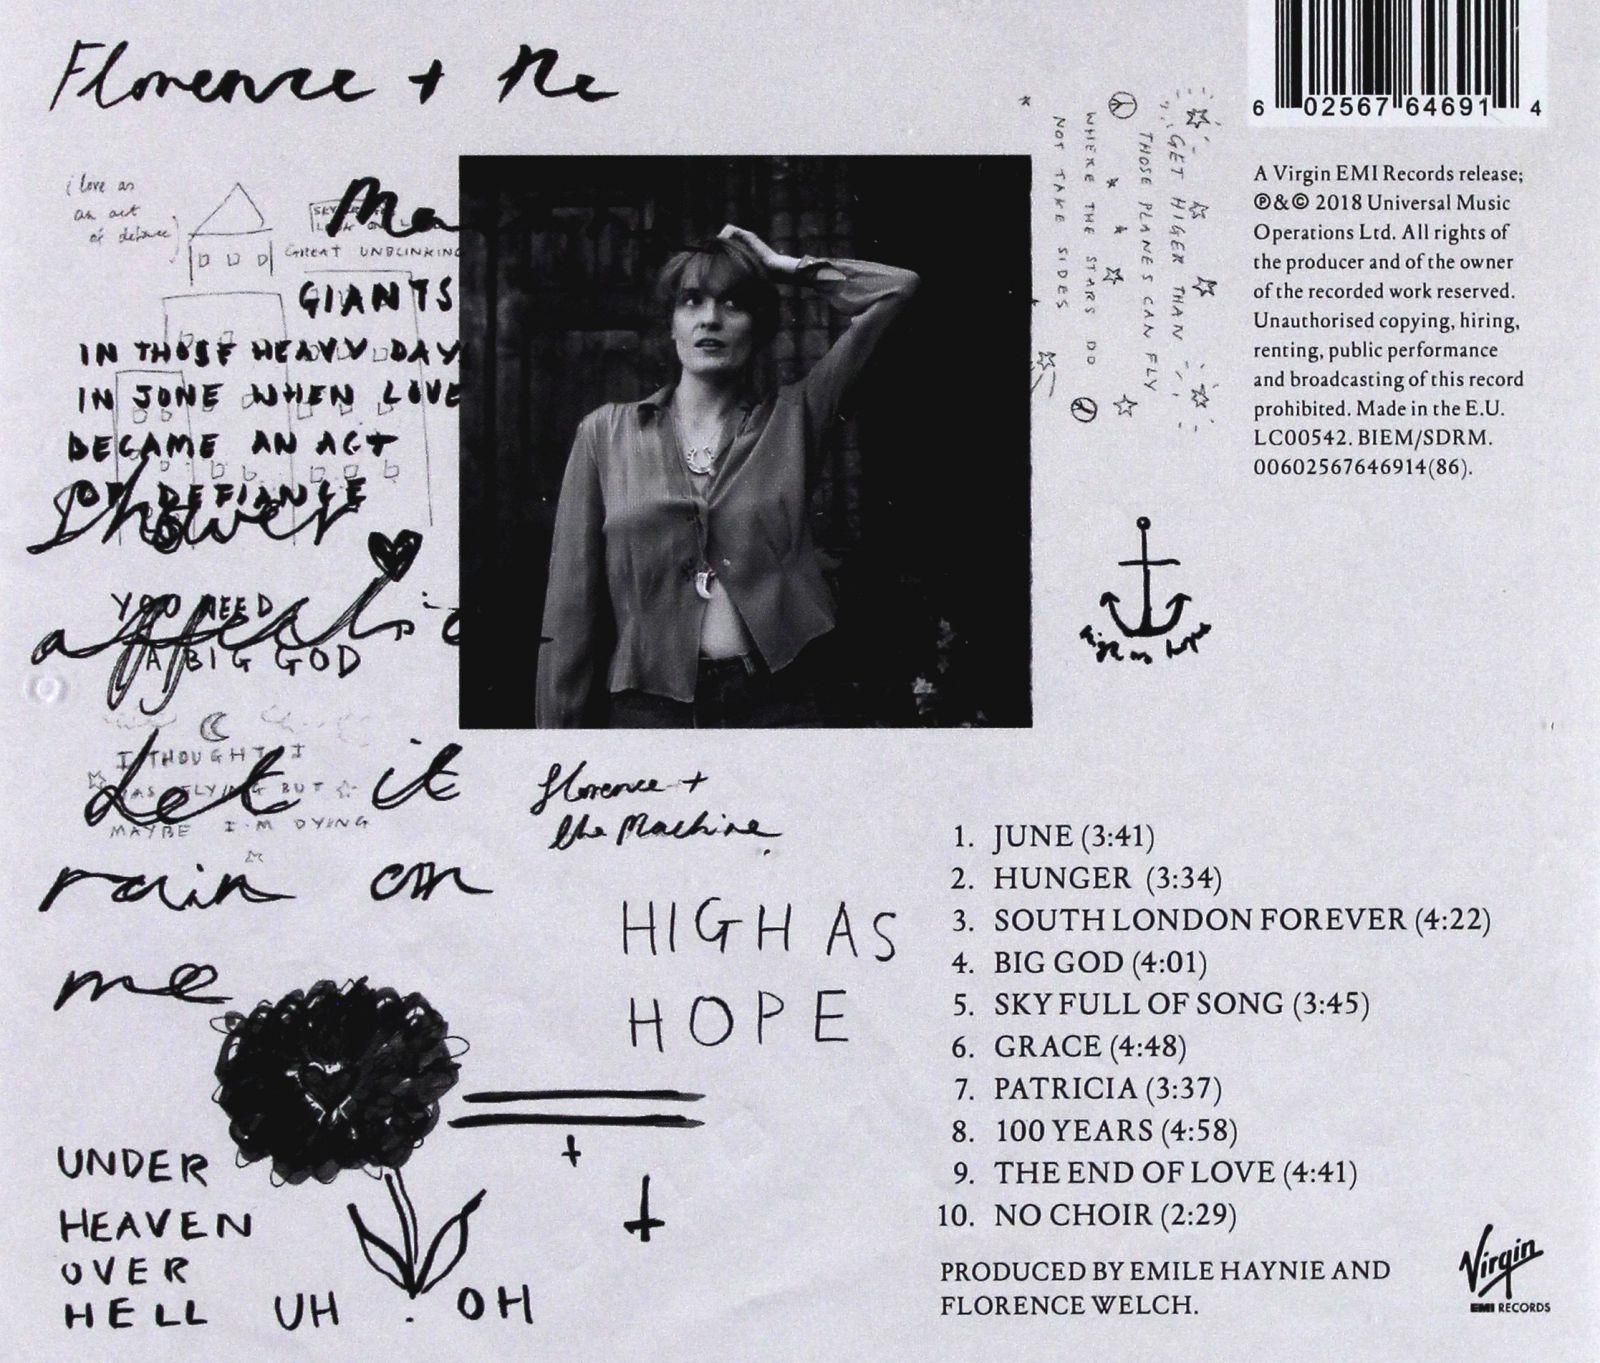 Florence + The
Ma
i love as
an act
of defiance
GREAT UNBLINKING
GIANTS
IN THOSE HEAVY DAYS
IN JUNE WHEN LOVE
BECAME AN ACT
OF DEFIANCE
Shower
YOU NEED
A BIG GOD
affection
I THOUGHT I
WAS FLYING BUT
MAYBE I'M DYING
Let it
rain on
me
UNDER
HEAVEN
OVER
HELL UH . OH
Florence +
the Machine.
HIGH AS
HOPE
GET HIGER THAN
THOSE PLANES CAN FLY
WHERE THE STARS DO
NOT TAKE SIDES
6 02567 64691 4
A Virgin EMI Records release;
℗&© 2018 Universal Music
Operations Ltd. All rights of
the producer and of the owner
of the recorded work reserved.
Unauthorised copying, hiring,
renting, public performance
and broadcasting of this record
prohibited. Made in the E.U.
LC00542. BIEM/SDRM.
00602567646914(86).
High as hope
1. JUNE (3:41)
2. HUNGER (3:34)
3. SOUTH LONDON FOREVER (4:22)
4. BIG GOD (4:01)
5. SKY FULL OF SONG (3:45)
6. GRACE (4:48)
7. PATRICIA (3:37)
8. 100 YEARS (4:58)
9. THE END OF LOVE (4:41)
10. NO CHOIR (2:29)
PRODUCED BY EMILE HAYNIE AND
FLORENCE WELCH.
Virgin
EMI RECORDS